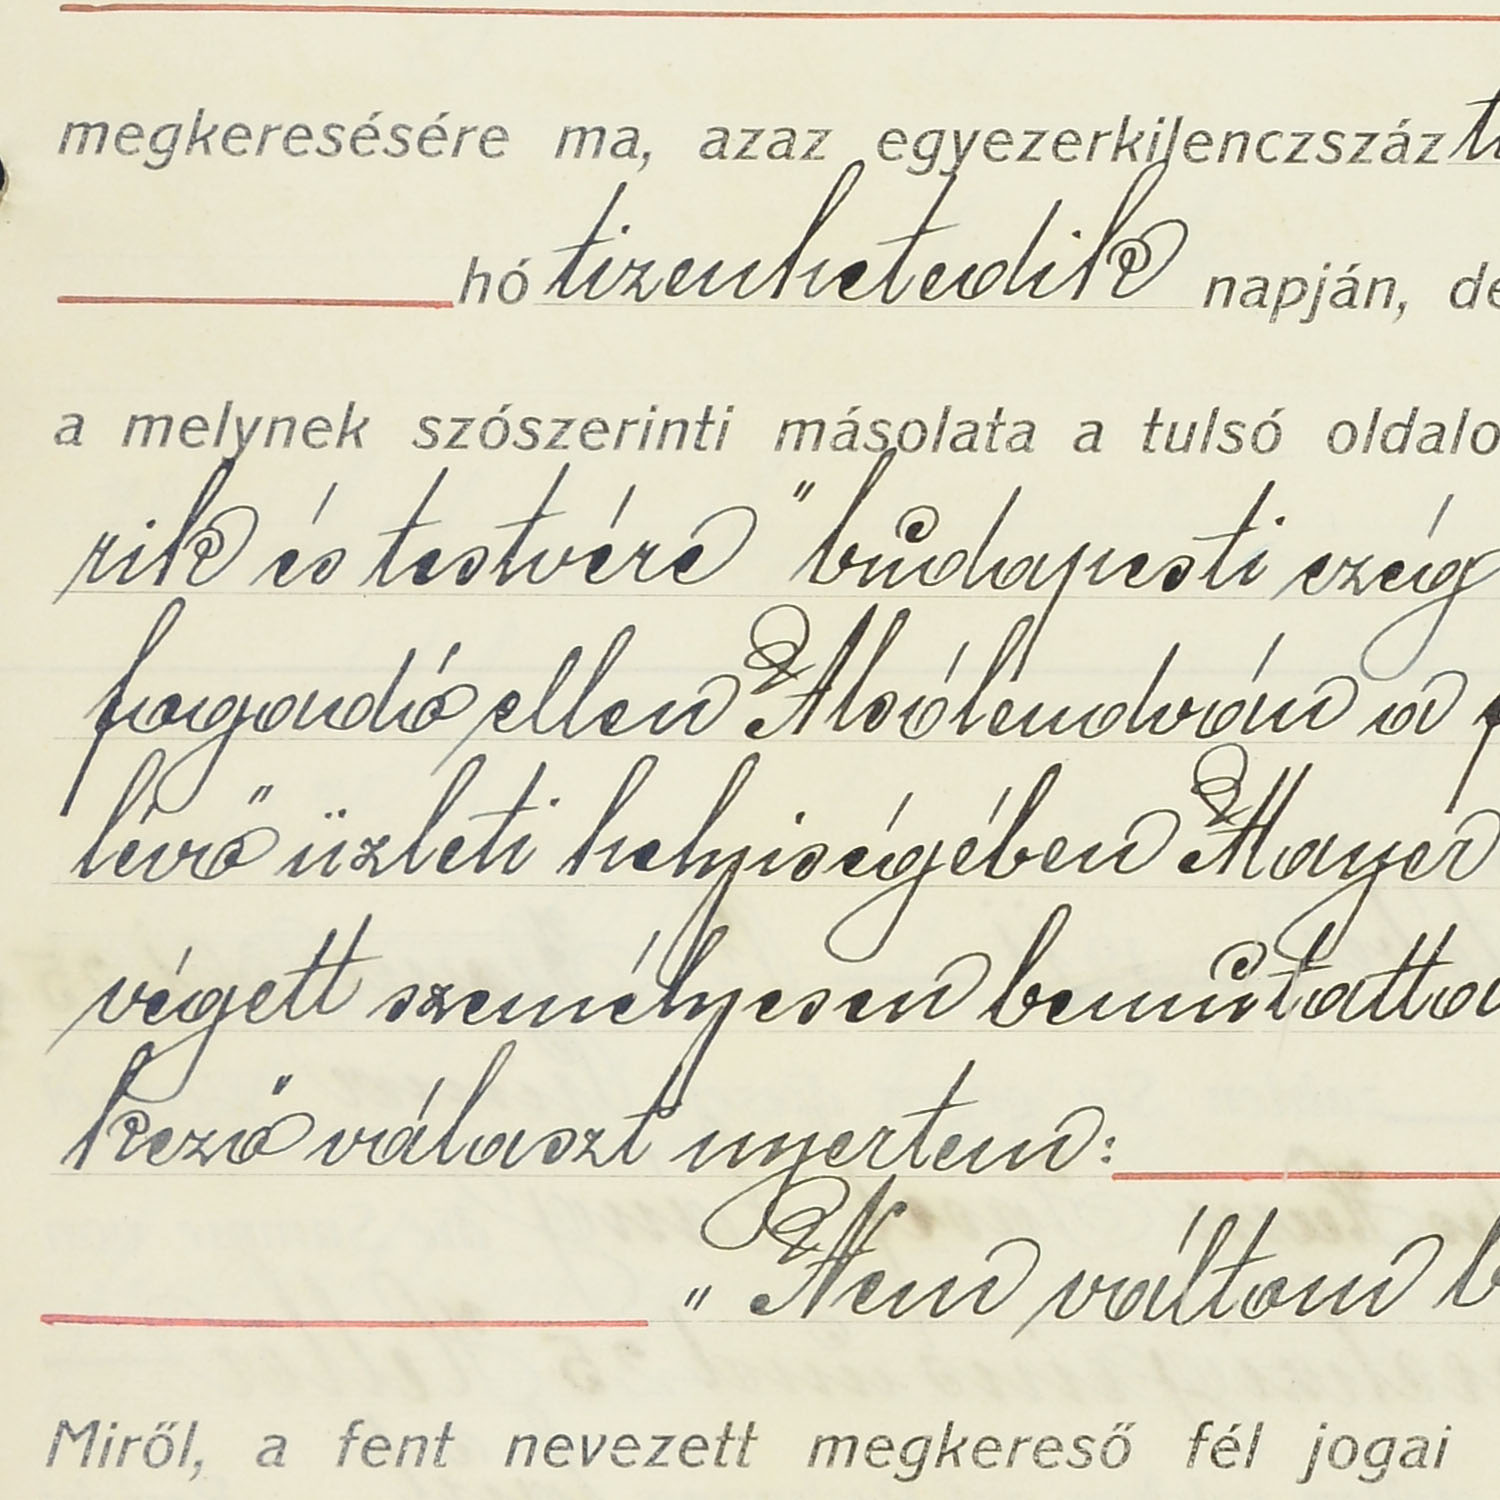 megkeresésére ma, azaz egyezerkilenczszáz
hó tizenhetedik napján, de
a melynek szószerinti másolata a tulsó oldalo
rik és testvére" budapesti czég
fogadó ellen Alsólendván a
lévő üzleti helyiségében Mayer
végett személyesen bemutatta
kező választ nyertem:
"Nem váltom b
Miről, a fent nevezett megkereső fél jogai